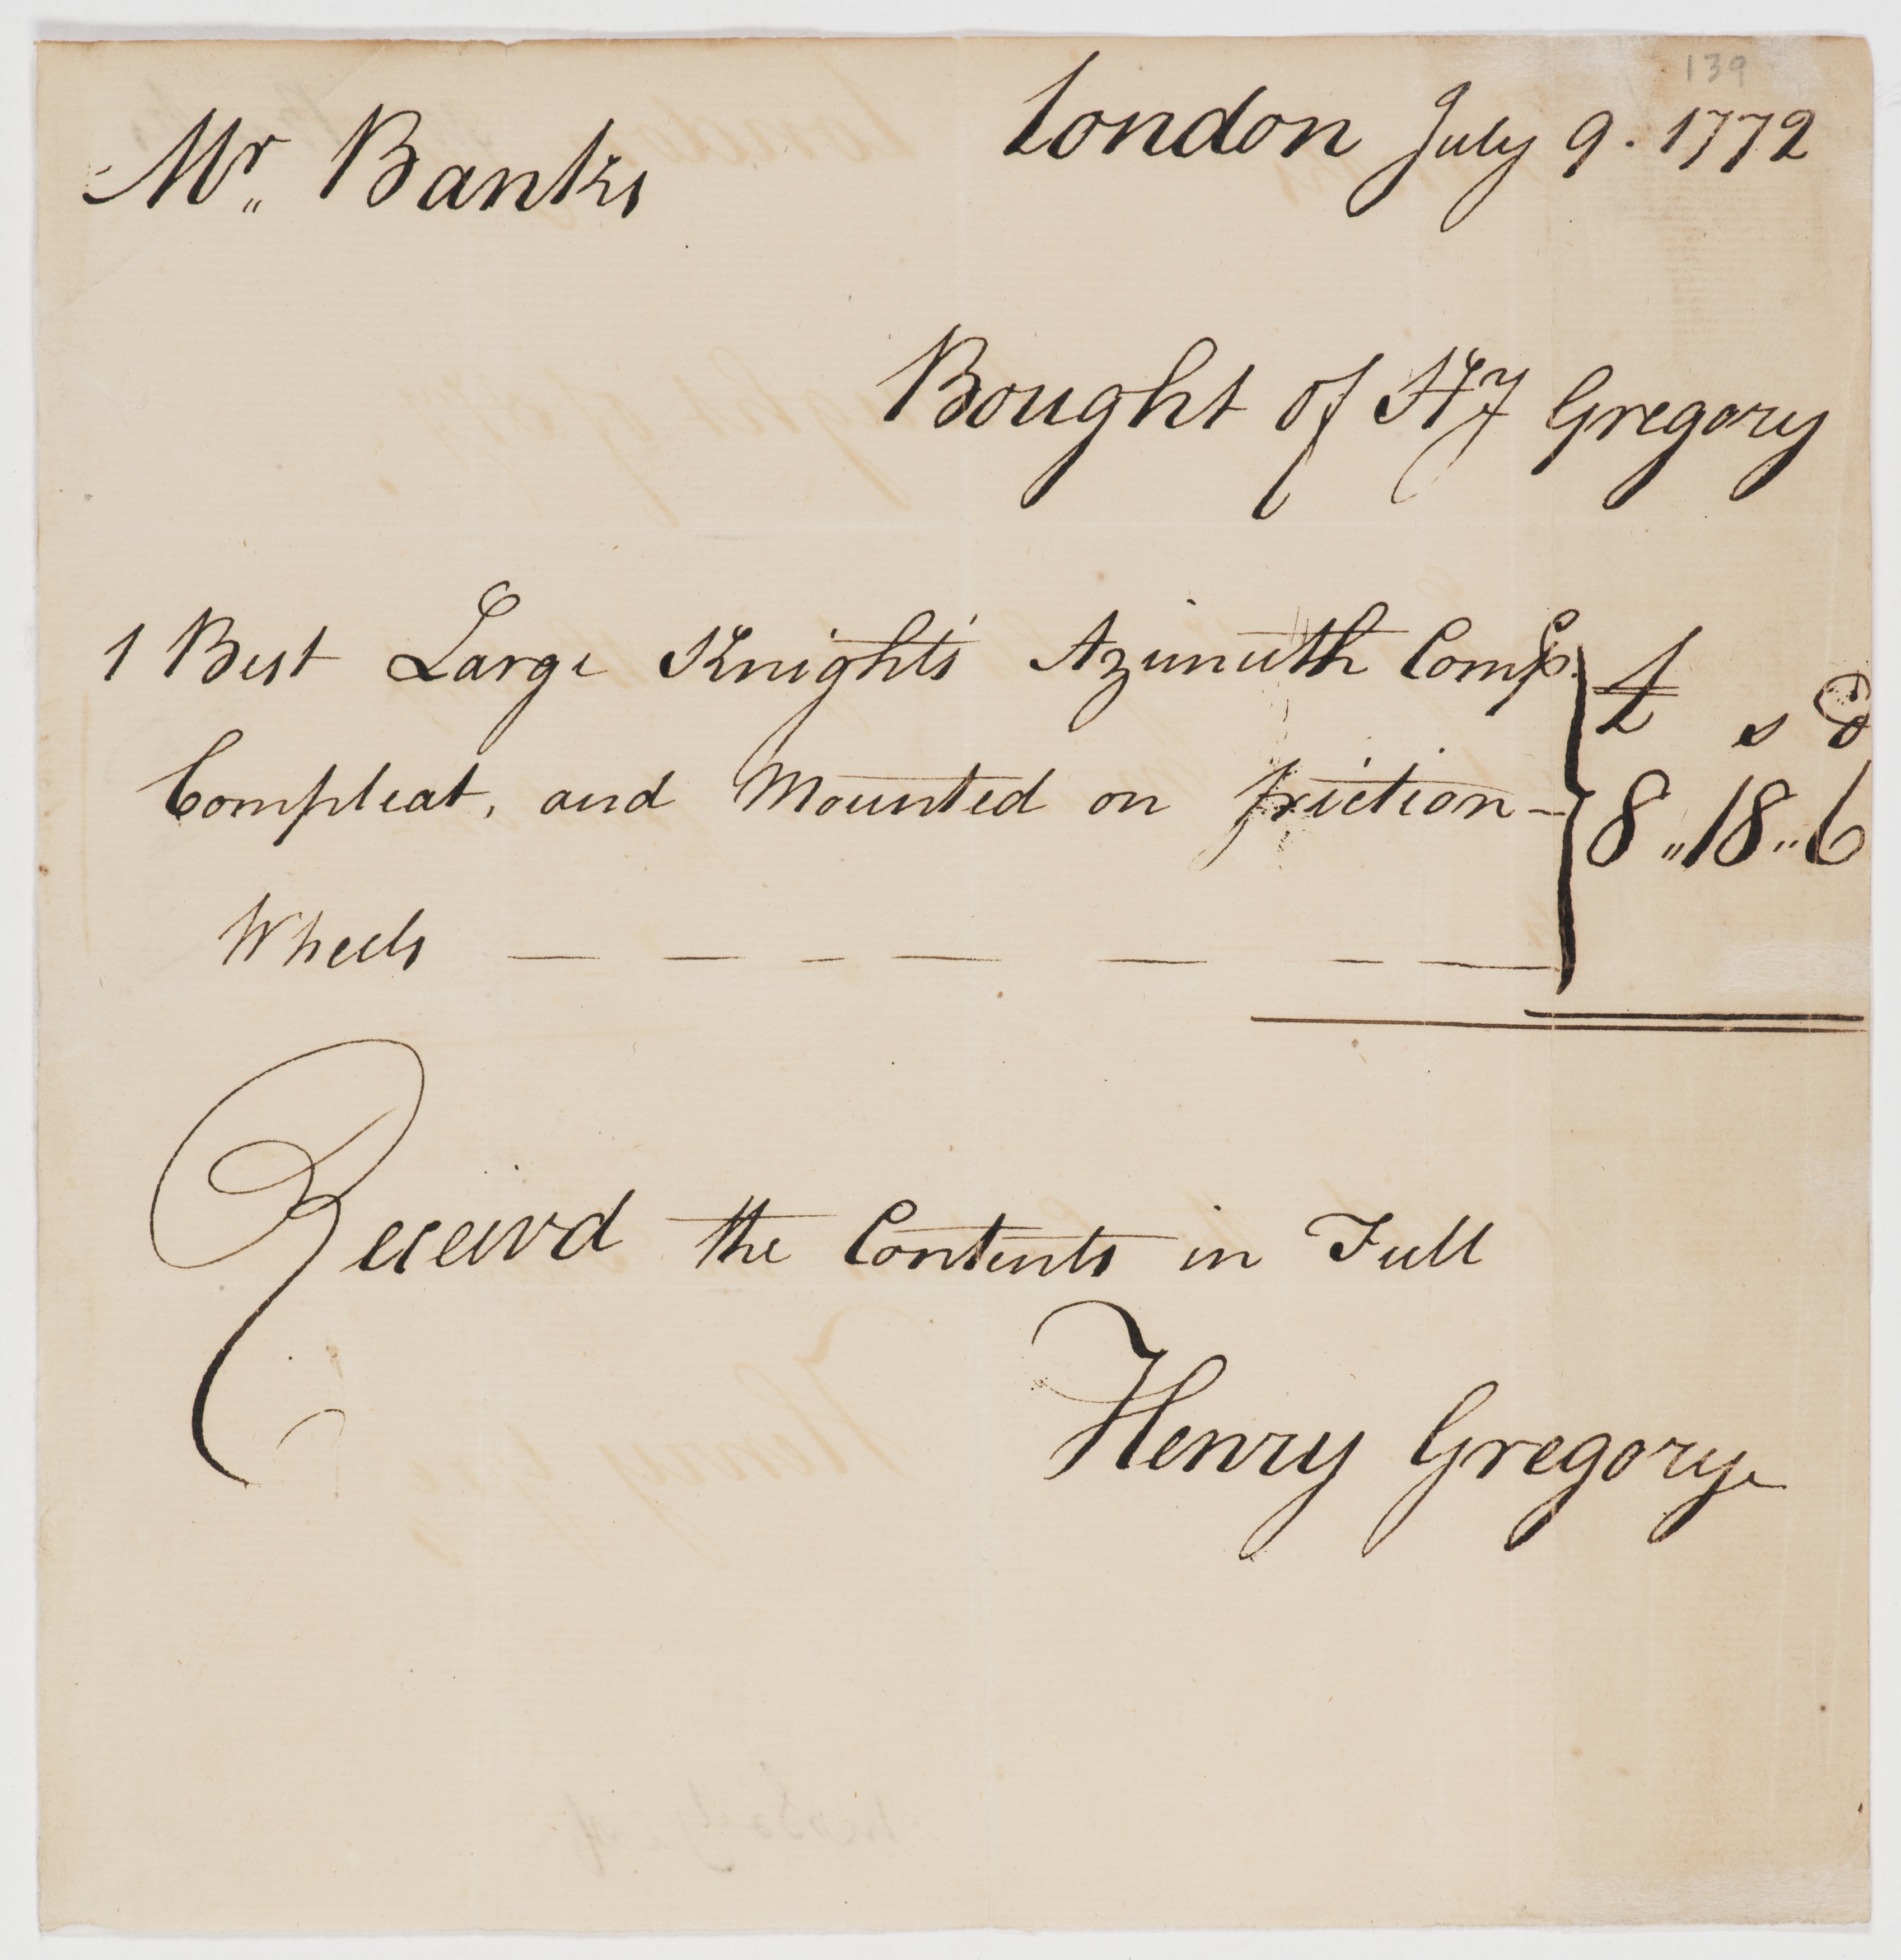 139
London July 9. 1772
Mr. Banks
Bought of Hy Gregory
1 Best Large Knight's Azimuth Comps.
Compleat, and Mounted on friction-
Wheels — — — — — — —
£ s d
8 „ 18 „ 6
Receivd the Contents in Full
Henry Gregory